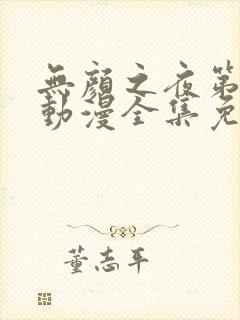 無顏之夜第
動漫全集免
董志平